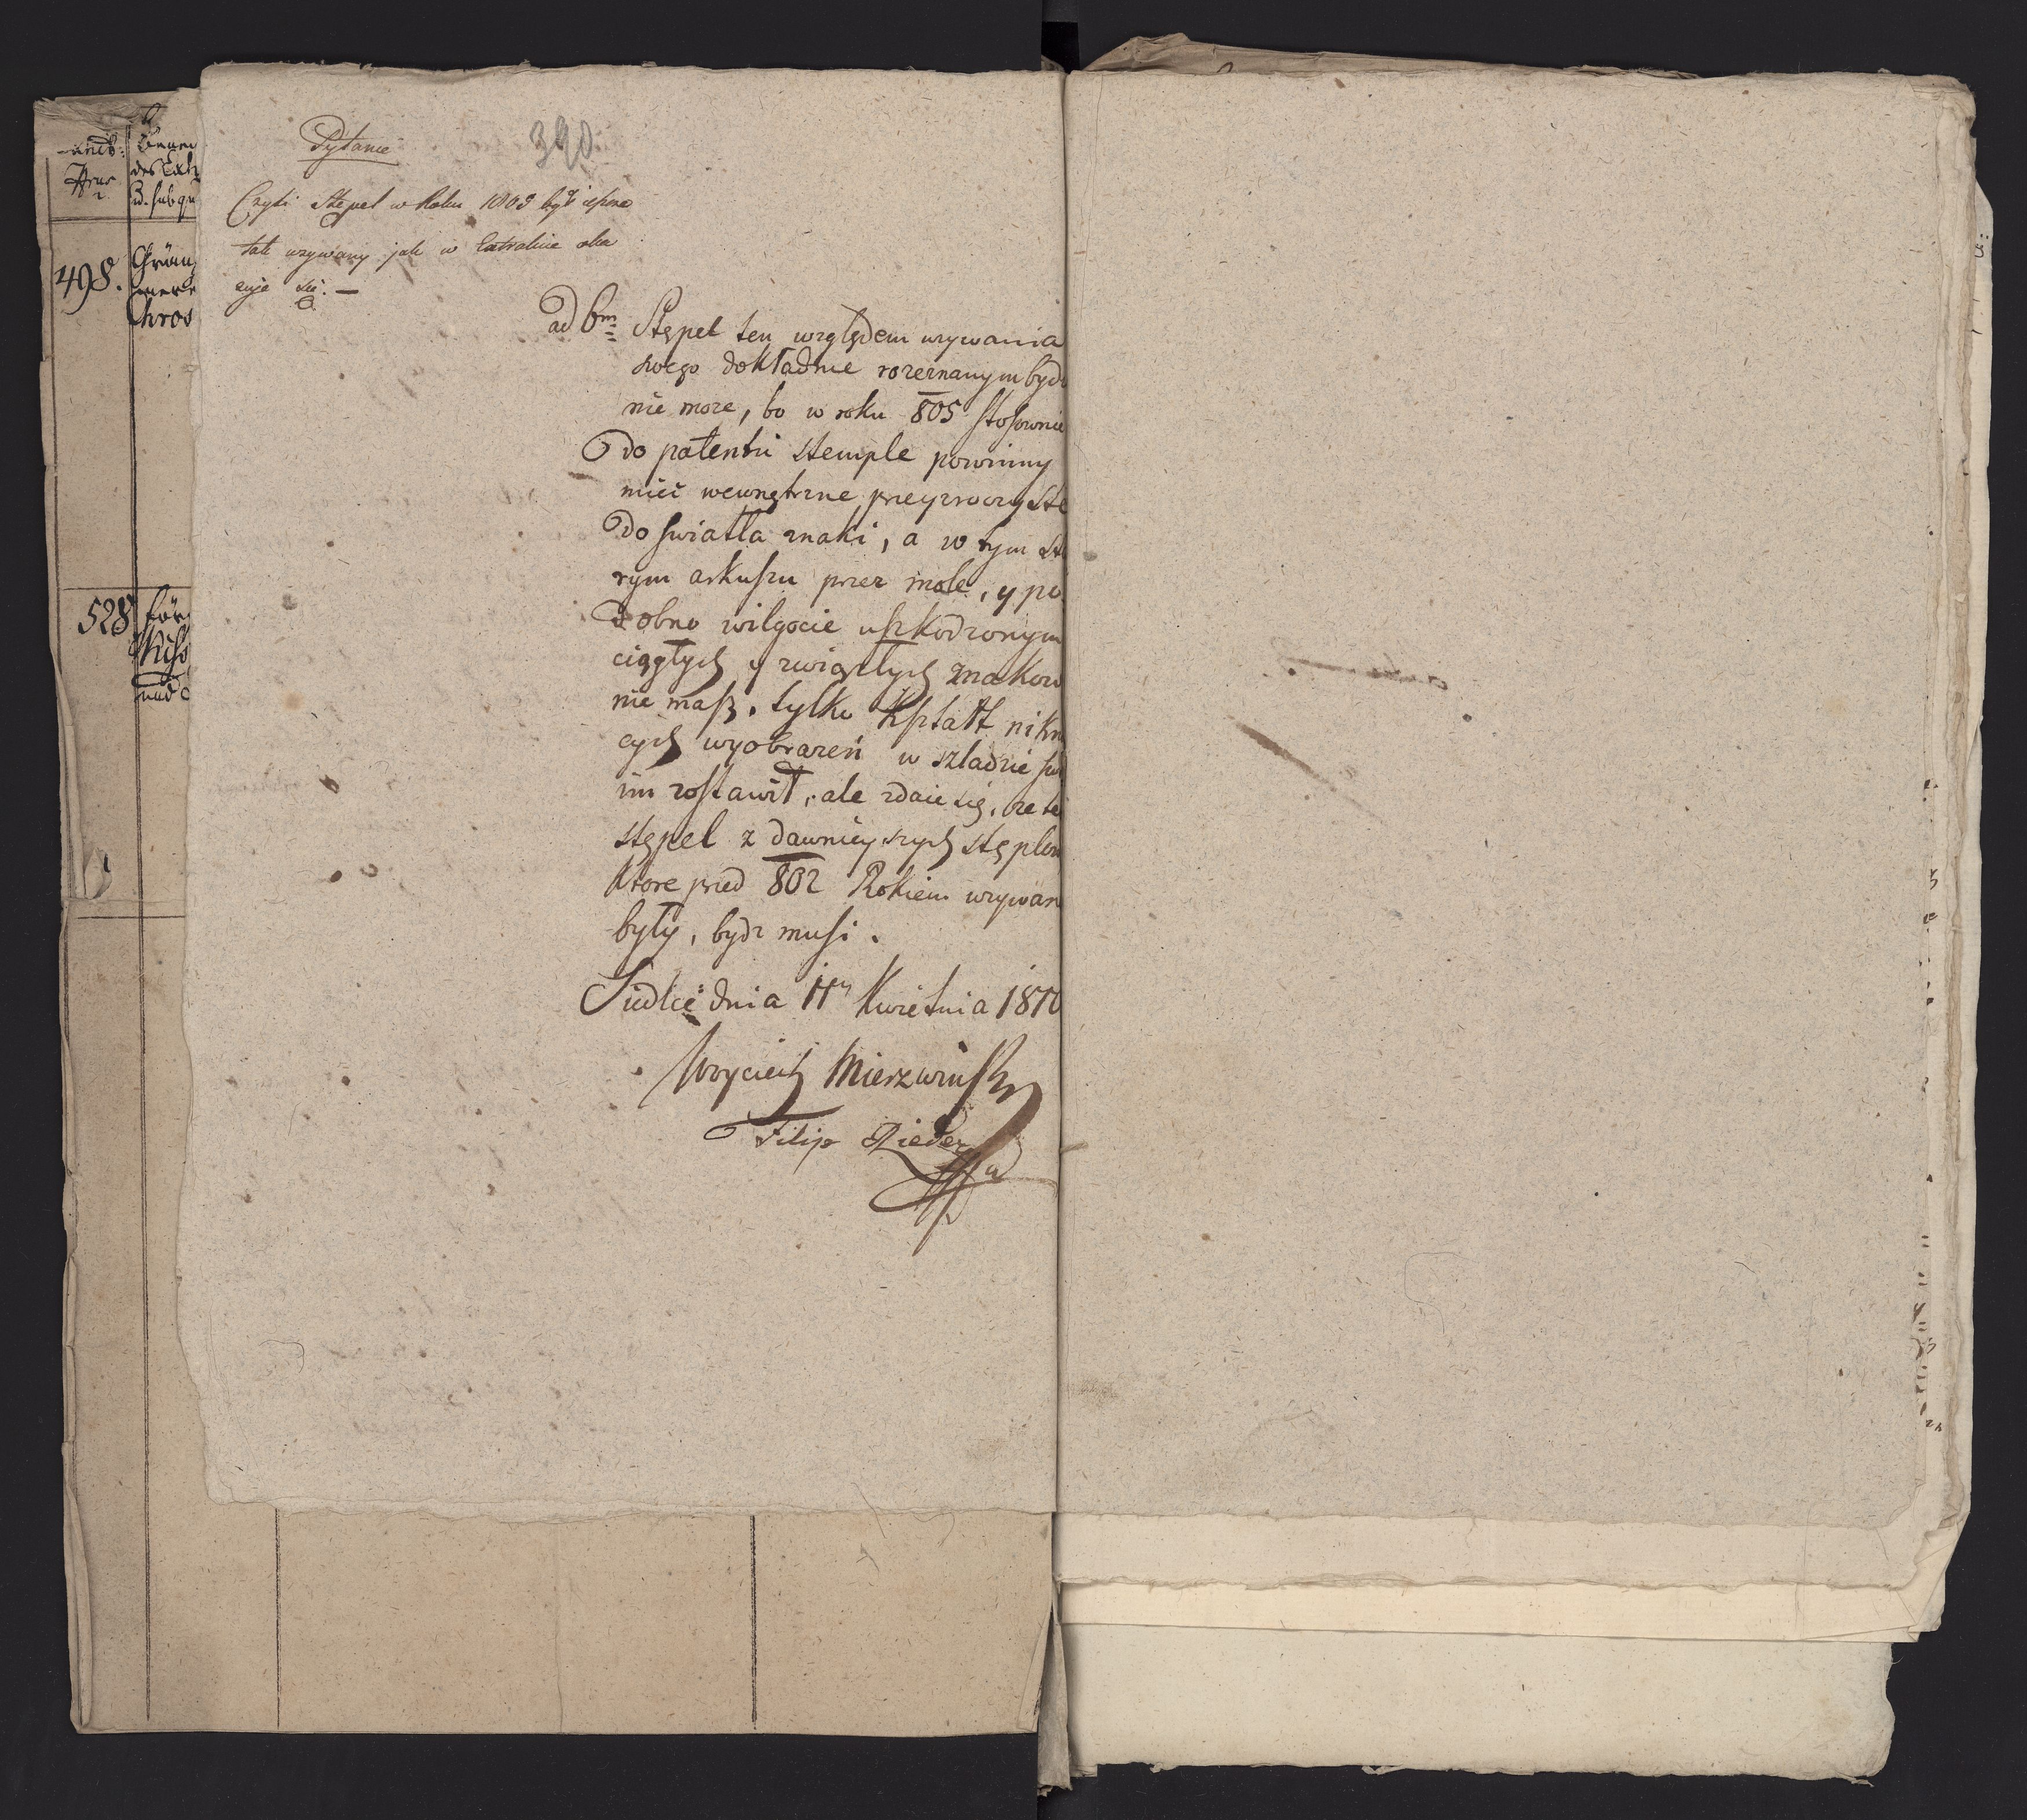 Pytanie
390.
Czyli Stępel w Roku 1803 był ieszcze
tak uzywany jak w Extrakcie oka
zuje się. —
ad 6m Stępel ten względem uzywania
swego dokładnie rozeznanym bydz
nie moze, bo w roku 805 stosownie
do patentu stemple powinny
mieć wewnętrzne przeyzroczyste
do swiatła znaki, a w tym sta
rym arkuszu przez mole, y po
dobno wilgocie uszkodzonym
ciągłych y zwięzłych znakow
nie masz, tylko kształt nikn
cych wyobrazeń w szladzie
im zostawił, ale zdaie się, ze te
stępel z dawnieyszych stęplow
ktore przed 802 Rokiem uzywan
były, bydz musi.
Siedlce dnia 11 Kwietnia 1810
Woyciech Mierzwinski
Filip Rieder
498.
Chros
528